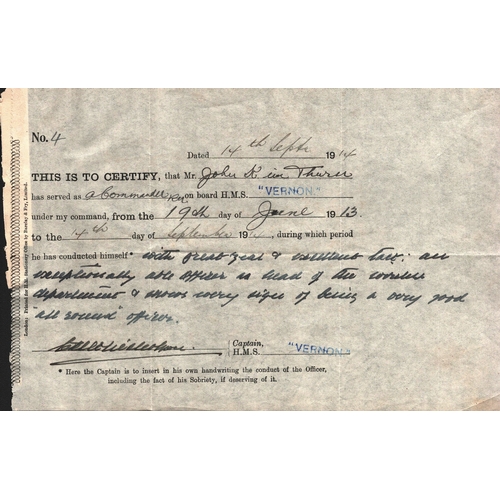 No. 4
Dated 14th Septr 1914
THIS IS TO CERTIFY, that Mr. John K im Thurn
has served as a Commander RN on board H.M.S. "VERNON."
under my command, from the 19th day of June 1913.
to the 14th day of September 19, during which period
he has conducted himself * with great zeal & : an
exceptionally able officer as head of the wireless
department & shows every sign of being a very good
"all round" officer.
Captain,
H.M.S. "VERNON."
* Here the Captain is to insert in his own handwriting the conduct of the Officer,
including the fact of his Sobriety, if deserving of it.
London: Printed for H.M. Stationery Office by Limited.